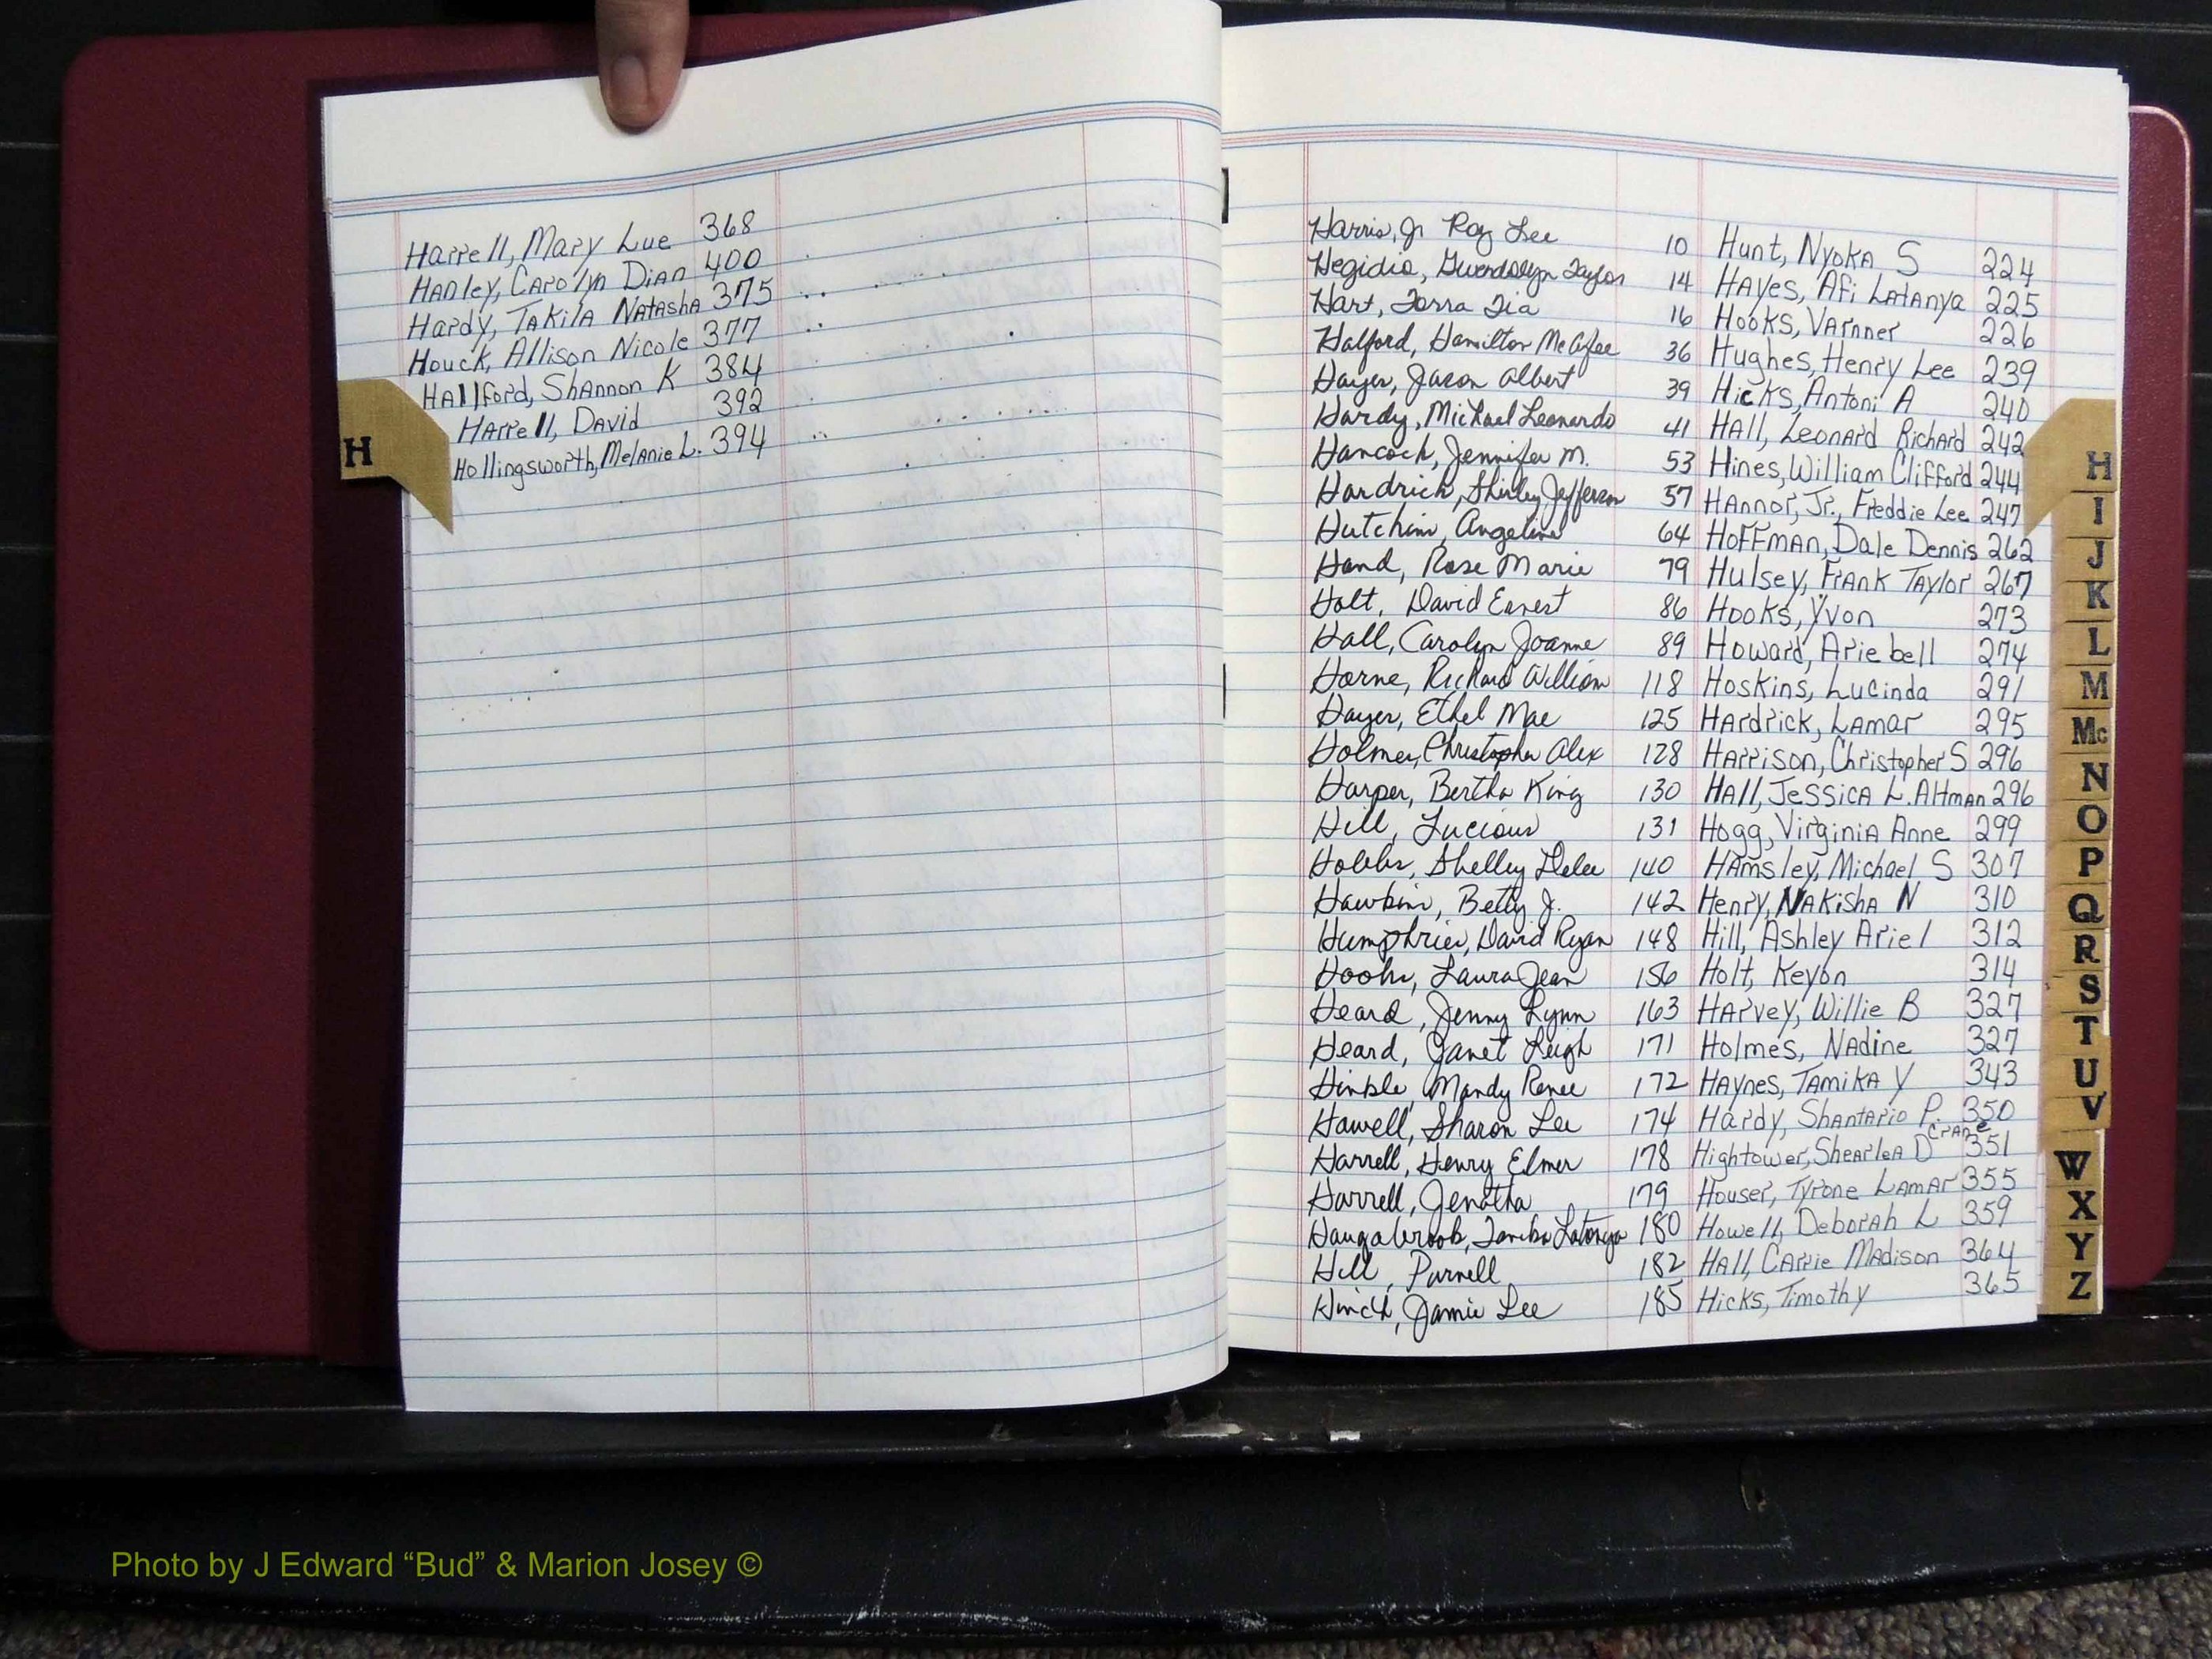 Harrell, Mary Lue 368
Hanley, Carolyn Dian 400
Hardy, Takila Natasha 375
Houck, Allison Nicole 377
Hallford, Shannon K 384
Harrell, David 392
Hollingsworth, Melanie L. 394
H
Harris, Jr Roy Lee 10
Hegidio, Gwendolyn Taylor 14
Hart, Torra Tia 16
Halford, Hamilton McAfee 36
Hayes, Jason Albert 39
Hardy, Michael Leonardo 41
Hancock, Jennifer M. 53
Hardrick, Shirley Jefferson 57
Hutchins, Angeline 64
Hand, Rose Marie 79
Holt, David Earnest 86
Hall, Carolyn Joanne 89
Horne, Richard William 118
Hayes, Ethel Mae 125
Holmes, Christopher Alex 128
Harper, Bertha King 130
Hill, Lucious 131
Hobbs, Shelley 140
Hawkins, Betty J. 142
Humphries, David Ryan 148
Hooks, Laura Jean 156
Heard, Jenny Lynn 163
Heard, Janet Leigh 171
Hinkle, Mandy Renee 172
Howell, Sharon Lee 174
Harrell, Henry Elmer 178
Harrell, Jenatha 179
Haugabrook, Tomika Latonya 180
Hill, Purnell 182
Hinch, Jamie Lee 185
Hunt, Nyoka S 224
Hayes, Afi Latanya 225
Hooks, Varnner 226
Hughes, Henry Lee 239
Hicks, Antoni A 240
Hall, Leonard Richard 242
Hines, William Clifford 244
Hannor, Jr., Freddie Lee 247
Hoffman, Dale Dennis 262
Hulsey, Frank Taylor 267
Hooks, Yvon 273
Howard, Arie bell 274
Hoskins, Lucinda 291
Hardrick, Lamar 295
Harrison, Christopher S 296
Hall, Jessica L. Altman 296
Hogg, Virginia Anne 299
Hamsley, Michael S 307
Henry, Nakisha N 310
Hill, Ashley Ariel 312
Holt, Keyon 314
Harvey, Willie B 327
Holmes, Nadine 327
Haynes, Tamika Y 343
Hardy, Shantario P. 350
Hightower, Shearlea D Crane 351
Houser, Tyrone Lamar 355
Howell, Deborah L 359
Hall, Carrie Madison 364
Hicks, Timothy 365
H
I
J
K
L
M
Mc
N
O
P
Q
R
S
T
U
V
W
X
Y
Z
Photo by J Edward “Bud” & Marion Josey ©